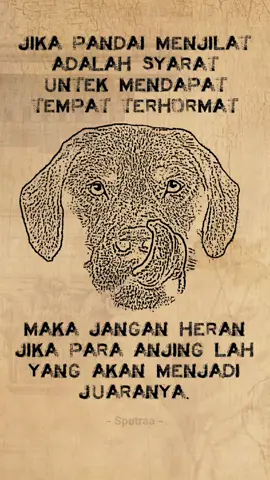 JIKA PANDAI MENJILAT
ADALAH SYARAT
UNTEK MENDAPAT
TEMPAT TERHORMAT
MAKA JANGAN HERAN
JIKA PARA ANJING LAH
YANG AKAN MENJADI
JUARANYA.
- Sputraa -